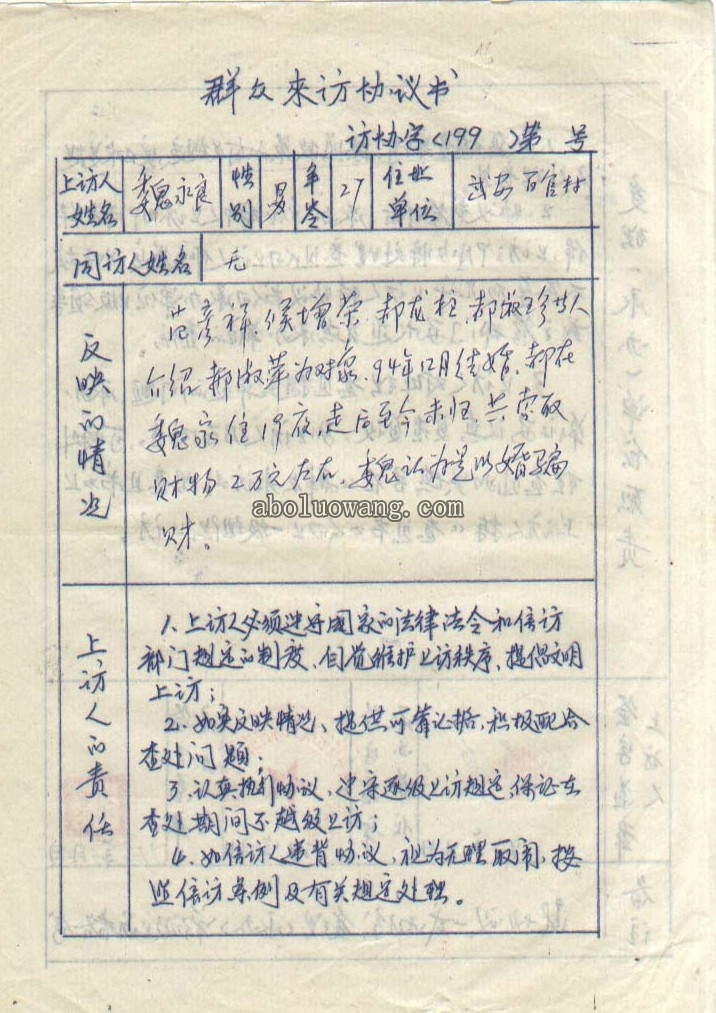 群众来访协议书
访协字(199 )第 号
上访人姓名 魏永良 性别 男 年令 27 住址单位 武安 百官村
同访人姓名 无
反映的情况
范彦禄、侯增荣、郝龙柱、郝淑珍共人
介绍郝淑苹为对象,94年12月结婚,郝在
魏家住19夜,走后至今未归,共索取
财物2万元左右,魏认为是以婚骗
财。
aboluowang.com
上访人的责任
1、上访人必须遵守国家的法律法令和信访
部门规定的制度、自觉维护上访秩序,提倡文明
上访;
2、如实反映情况、提供可靠证据,积极配合
查处问题;
3、认真执行协议,遵守逐级上访规定,保证在
查处期间不越级上访;
4、如信访人违背协议,视为无理取闹,按
照信访条例及有关规定处理。